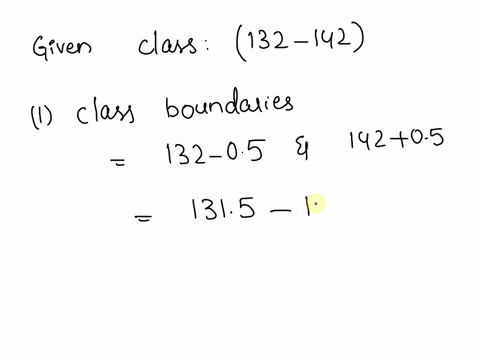 Given class: (132-142)
(1) class boundaries
= 132-0.5 & 142+0.5
= 131.5 - 1.